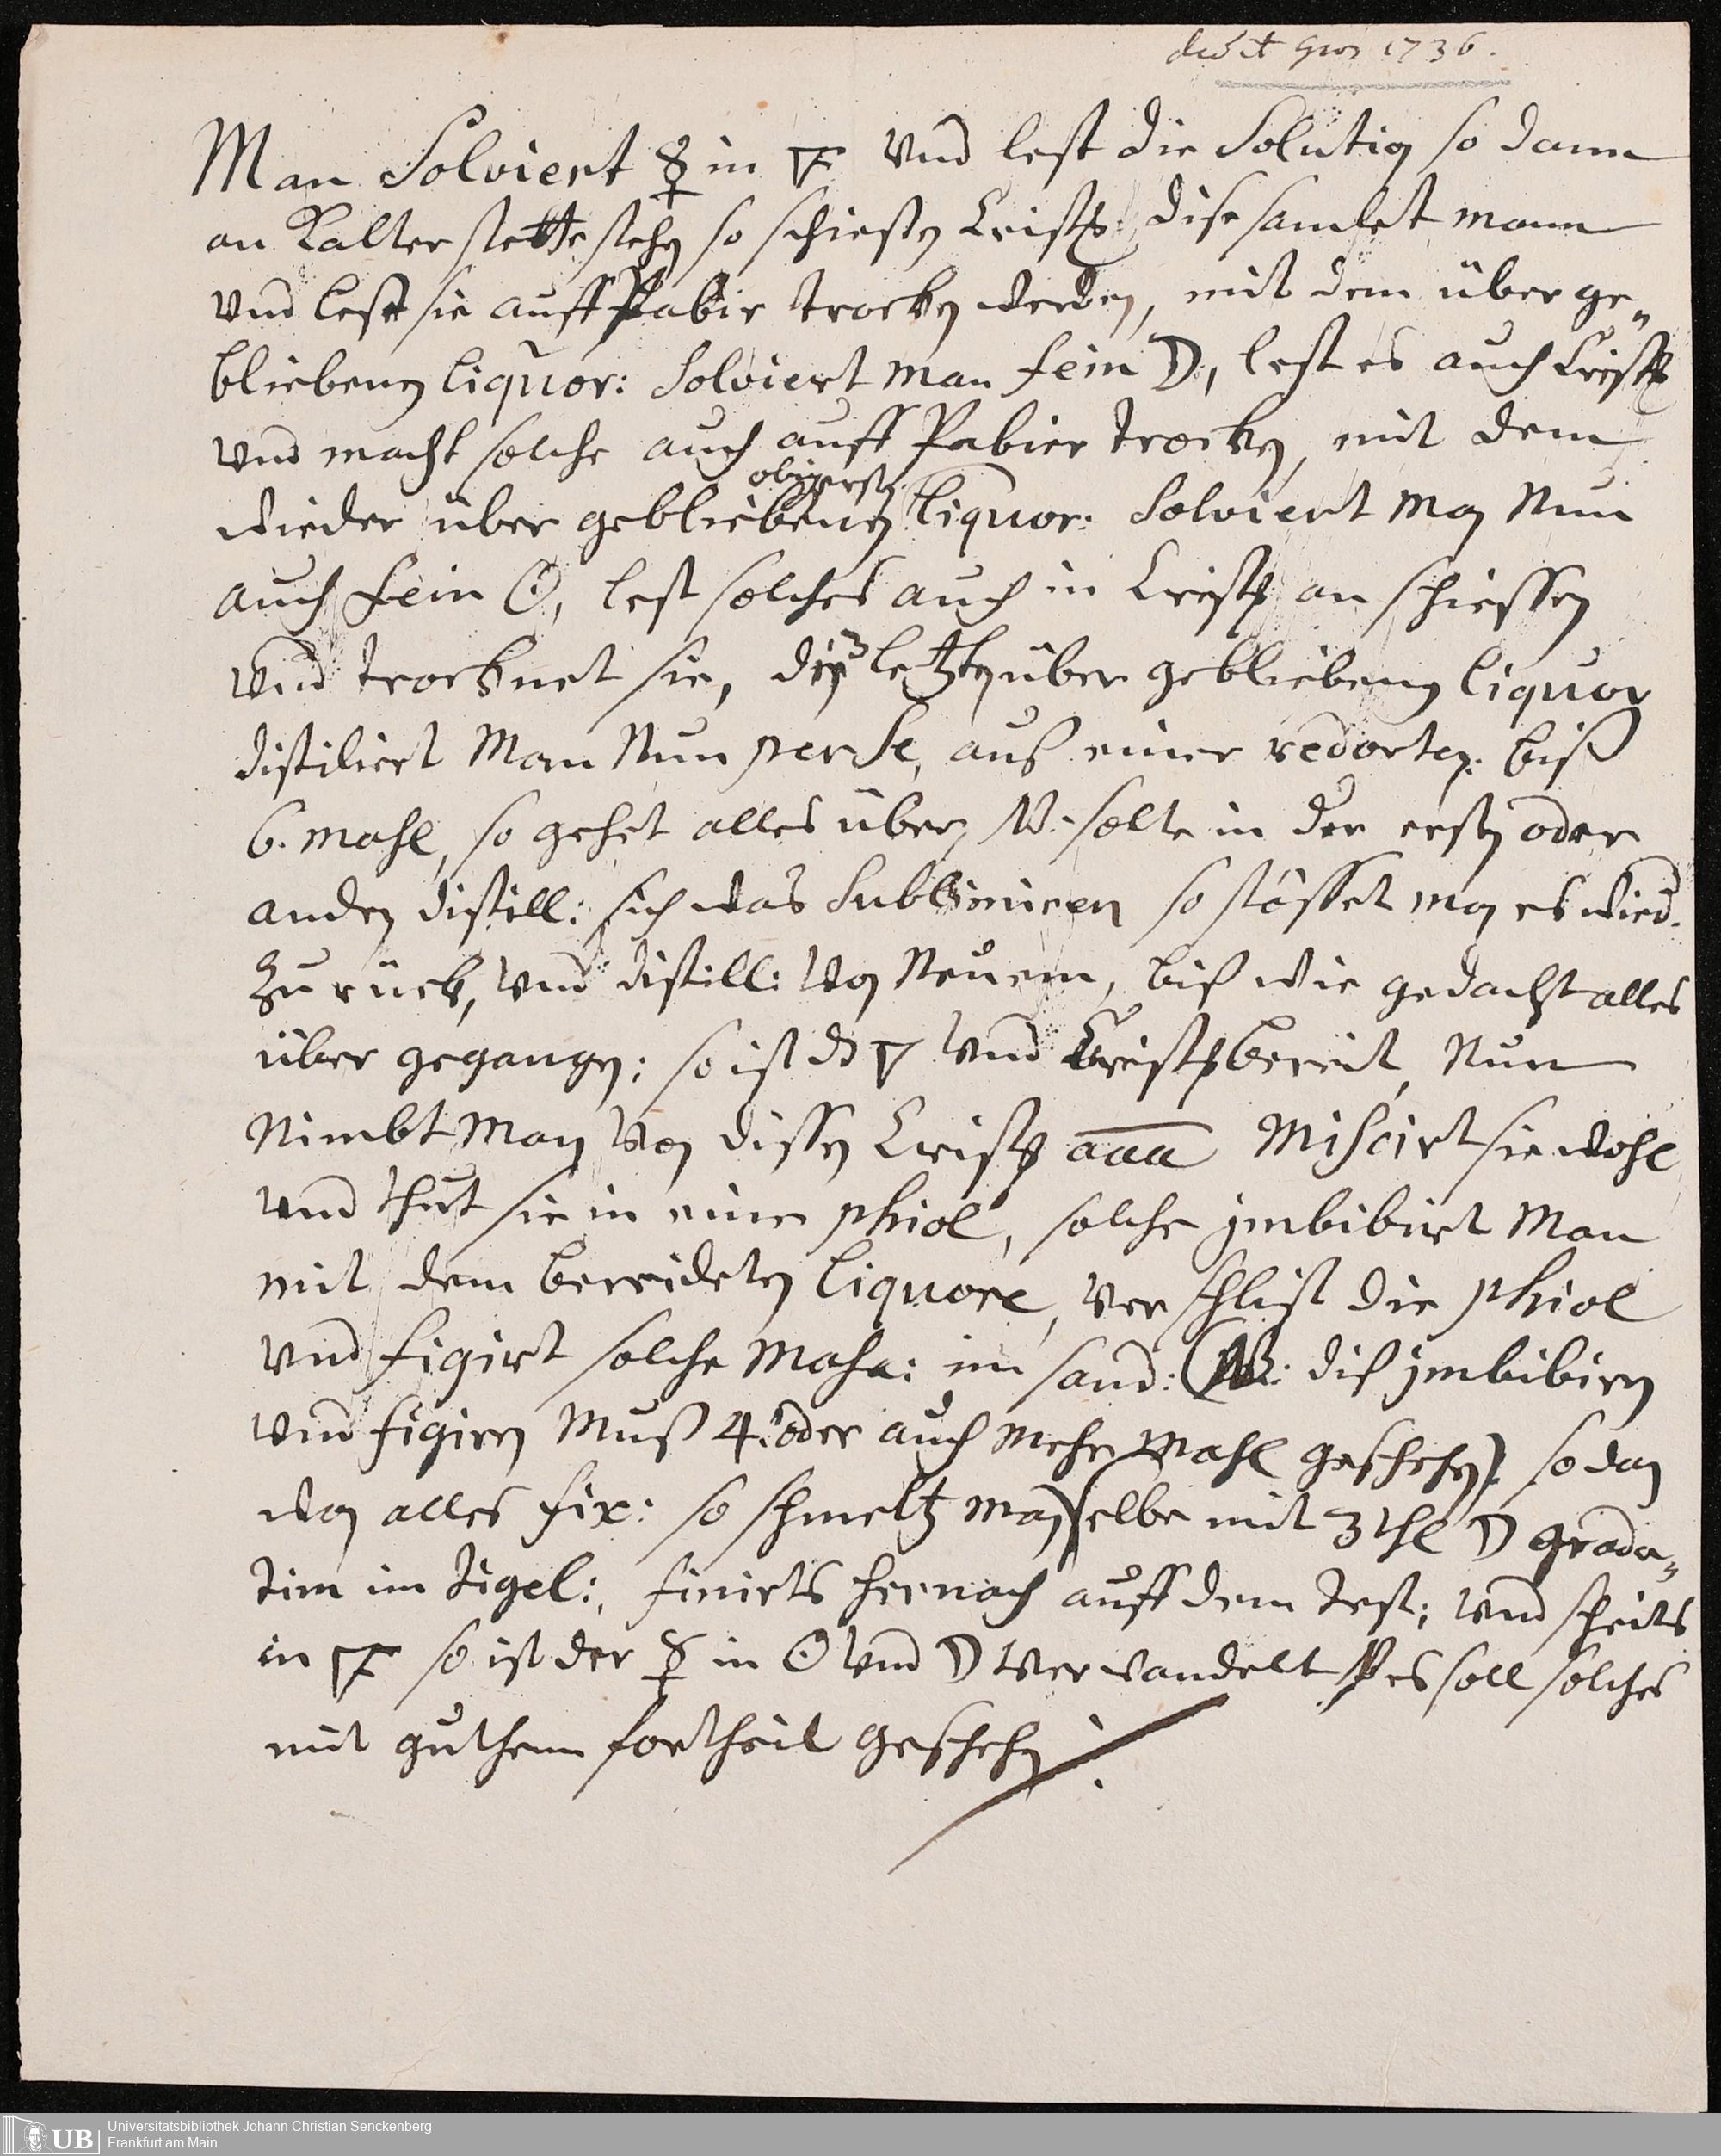 dedit 1736.
Man Solviert ☿ in 🜅 Vnd lest die Solution so dann
an Kalter stette stehen so schiessen Crist: dise samlet mann
Vnd lest sie auff Pabir trocken werden, mit dem über ge„
bliebenen liquor: Solviert man fein ☽, lest es auch Crist:
Vnd macht solche auch auff Pabier trocken, mit dem
obigersten
wieder über gebliebenen liquor: Solviert man Nun
auch fein ☉, lest solches auch in Crist: an schiessen
Vnd trocknet sie, letzten über gebliebenen liquor
distiliert Man Nun per se, auß einer redorten: biß
6. mahl, so gehet alles über, NB. solte in der ersten oder
anden distill: sich was Sublimiren so stösset man es wied.
Zu rück, Vnd distill: Von Neuem, biß wie gedacht alles
über gegangen; so ist d 🜄 Vnd Crist: bereit, Nun
Nimbt Man Von dissen Crist: aaa Miscirt sie wohl
Vnd thut sie in eine phiol, solche jmbibirt Man
mit dem bereideten liquore, Ver schlist die phiol
Vnd figirt solche Masa: im sand: (NB: diß jmbibiren
Vnd figiren Muß 4. oder auch Mehr Mahl geschehen) so dan
wan alles fix: so schmeltz man selbe mit 3 thl ☽ grada„
tim im tigel:, finirts hernach auff dem Test; Vnd scheits
in 🜅 so ist der ☿ in ☉ Vnd ☽ Ver wandelt es soll solches
mit guthem fortheil geschehen
Universitätsbibliothek Johann Christian Senckenberg
Frankfurt am Main
UB